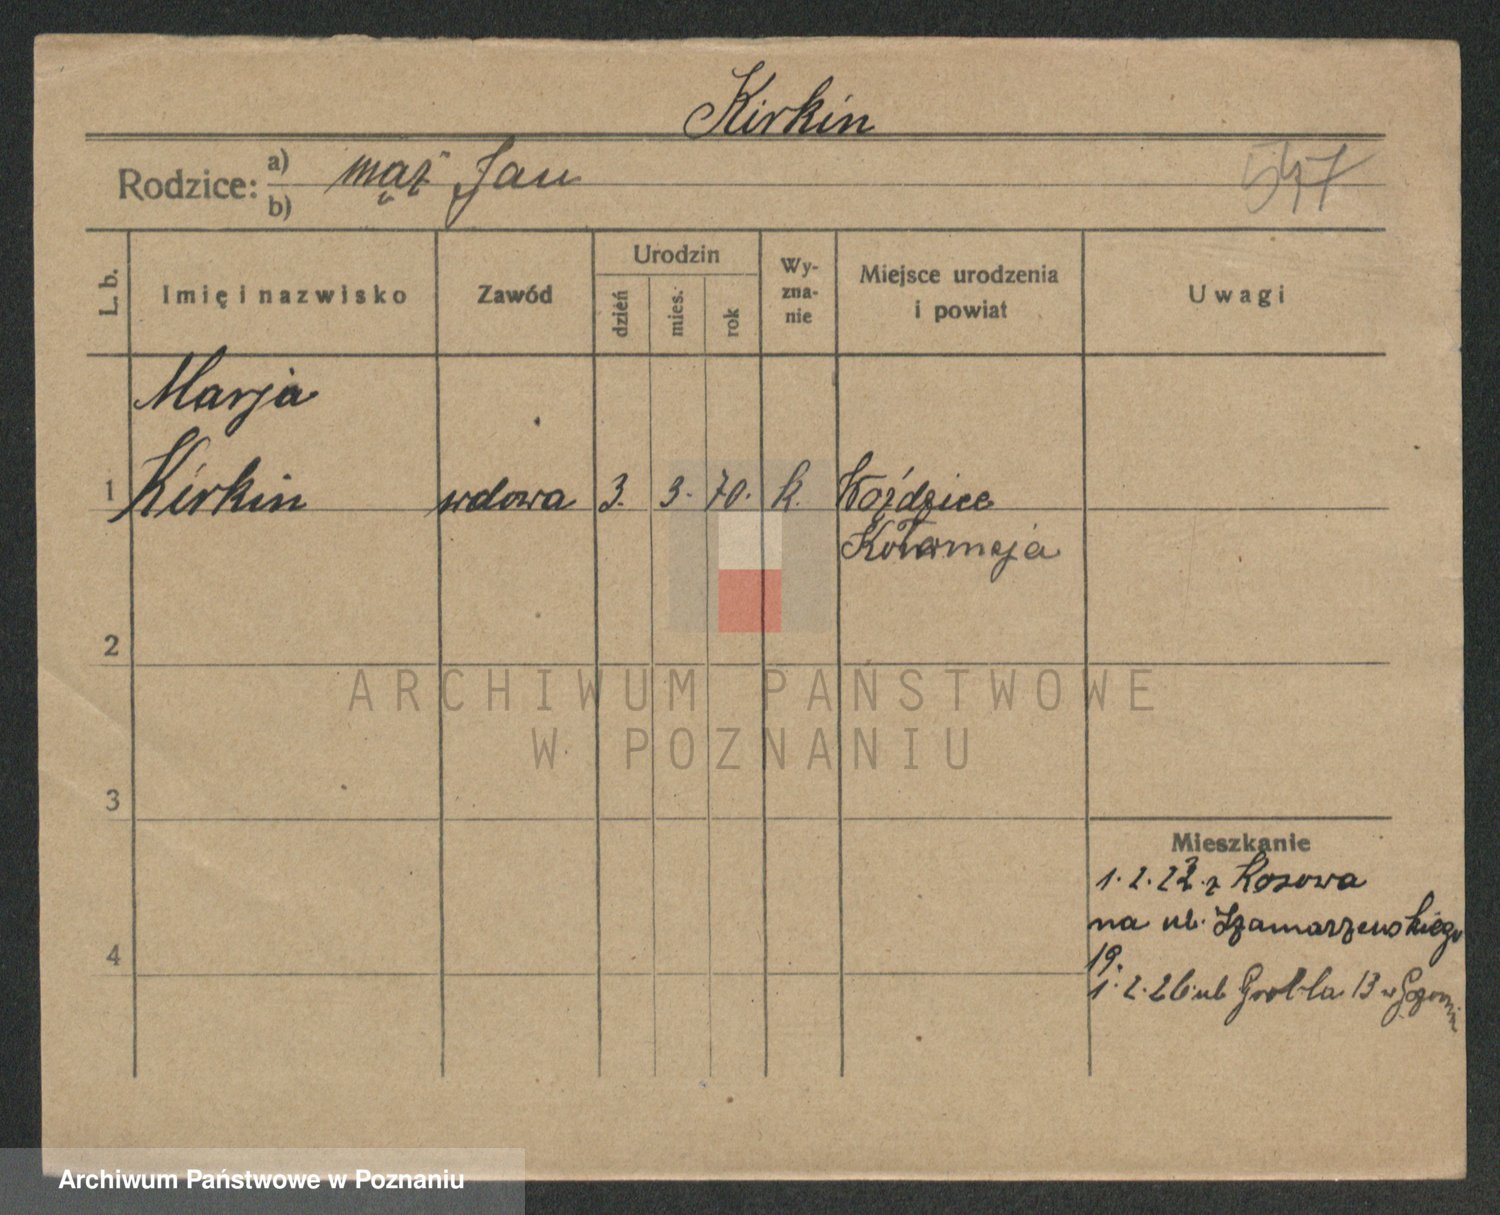 Kirkin
Rodzice: a) mąż Jan
b)
547
L. b. Imię i nazwisko Zawód Urodzin dzień mies. rok Wy-zna-nie Miejsce urodzenia i powiat Uwagi
Marja
1 Kirkin wdowa 3. 3. 70. k. Woździce
Kołomeja
2
ARCHIWUM PAŃSTWOWE
W POZNANIU
3
Mieszkanie
1. 2. 22. z Kosowa
na ul. Szamarzewskiego
19.
4
1. 2. 26 ul Grobla 13 w
Archiwum Państwowe w Poznaniu